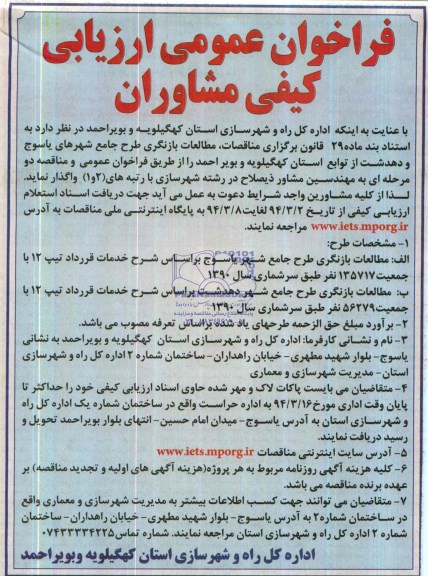 فراخوان عمومی ارزیابی
کیفی مشاوران
با عنایت به اینکه اداره کل راه و شهرسازی استان کهگیلویه و بویراحمد در نظر دارد به
استناد بند ماده۲۹ قانون برگزاری مناقصات، مطالعات بازنگری طرح جامع شهرهای یاسوج
و دهدشت از توابع استان کهگیلویه و بویر احمد را از طریق فراخوان عمومی و مناقصه دو
مرحله ای به مهندسین مشاور ذیصلاح در رشته شهرسازی با رتبه های(۲و۱) واگذار نماید.
لـذا از کلیه مشاورین واجد شرایط دعوت به عمل می آید جهت دریافت اسناد استعلام
ارزیابی کیفی از تاریخ ۹۴/۳/۲ لغایت۹۴/۳/۸ به پایگاه اینترنتی ملی مناقصات به آدرس
www.iets.mporg.ir مراجعه نمایند.
۱- مشخصات طرح:
الف: مطالعات بازنگری طرح جامع شهر یاسوج براساس شرح خدمات قرارداد تیپ ۱۲ با
جمعیت۱۳۵۷۱۷ نفر طبق سرشماری سال ۱۳۹۰
ب: مطالعات بازنگری طرح جامع شهر دهدشت براساس شرح خدمات قرارداد تیپ ۱۲ با
جمعیت۵۶۲۷۹ نفر طبق سرشماری سال ۱۳۹۰
۲- برآورد مبلغ حق الزحمه طرحهای یاد شده براساس تعرفه مصوب می باشد.
۳- نام و نشانی کارفرما: اداره کل راه و شهرسازی استان کهگیلویه و بویراحمد به نشانی
یاسوج- بلوار شهید مطهری- خیابان راهداران- ساختمان شماره ۲ اداره کل راه و شهرسازی
استان- مدیریت شهرسازی و معماری
۴- متقاضیان می بایست پاکات لاک و مهر شده حاوی اسناد ارزیابی کیفی خود را حداکثر تا
پایان وقت اداری مورخ۹۴/۳/۱۶ به اداره حراست واقع در ساختمان شماره یک اداره کل راه
و شهرسازی استان به آدرس یاسوج- میدان امام حسین- انتهای بلوار بویراحمد تحویل و
رسید دریافت نمایند.
۵- آدرس سایت اینترنتی مناقصات www.iets.mporg.ir
۶- کلیه هزینه آگهی روزنامه مربوط به هر پروژه(هزینه آگهی های اولیه و تجدید مناقصه) بر
عهده برنده مناقصه می باشد.
۷- متقاضیان می توانند جهت کسب اطلاعات بیشتر به مدیریت شهرسازی و معماری واقع
در ساختمان شماره۲ به آدرس یاسوج- بلوار شهید مطهری- خیابان راهداران- ساختمان
شماره ۲ اداره کل راه و شهرسازی استان مراجعه نمایند. شماره تماس۰۷۴۳۳۳۳۴۲۲۵
اداره کل راه و شهرسازی استان کهگیلویه وبویراحمد